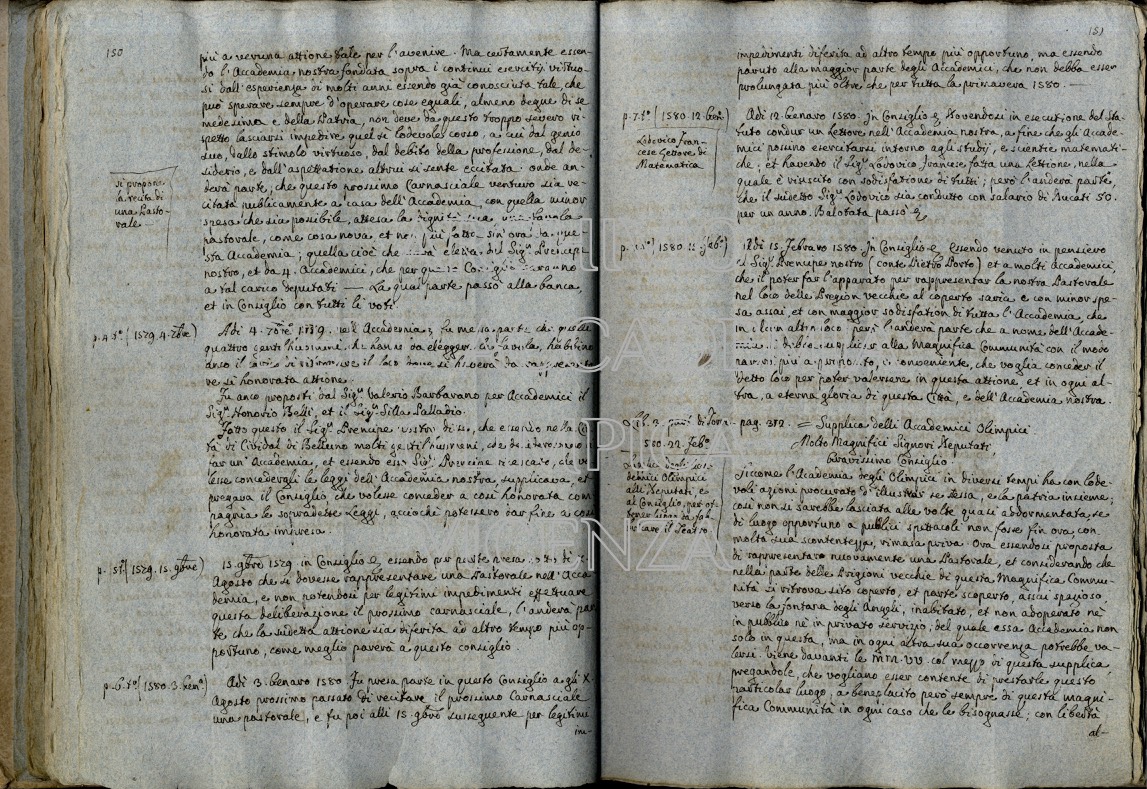 150
più a veruna attione tale per l'avenire. Ma certamente essen-
do l'Accademia nostra fondata sopra i continui esercitij virtuo-
si dall'esperienza di molti anni essendo già conosciuta tale, che
può sperare sempre d'operare cose eguali, almeno degne di se
medesima e della Patria, non deve da questo troppo severo ri-
spetto lasciarsi impedire quel sì lodevole corso, a cui dal genio
suo, dallo stimolo virtuoso, dal debito della professione, dal de-
siderio, e dall'aspettatione altrui si sente eccitata: onde an-
derà parte, che questo prossimo Carnasciale venturo sia re-
citata publicamente a casa dell'Accademia, con quella minor
spesa che sia possibile, attesa la
pastorale, come cosa nova et più fatta sin'ora da que-
sta Accademia; quella cioè che eletta dal Sigr. Prencipe
nostro, et da 4. Accademici, che per saranno
a tal carico deputati — La qual parte passò alla banca,
et in Consiglio con tutti li voti
si propone
la recita di
una Pasto-
rale
p. 43. (1579. 4. 7bre)
Adi 4. 7bre 1579. nell'Accademia fu messa parte che quelli
quattro gentilhuomini che hanno da elegger la favola, habbino
anco il carico di ritrovare il loco dove si haverà da rappresenta-
re sì honorata attione.
Fu anco proposti dal Sigr. Valerio Barbarano per Accademici il
Sigr. Honorio Belli, et il Sigr. Silla Palladio.
Fatto questo il Sigr. Prencipe nostro disse, che essendo nella Cit-
tà di Cividal di Belluno molti gentilhuomini, che desiderano
tar un'Accademia, et essendo esso Sigr. Prencipe ricercato, che vo-
lesse concedergli le leggi dell'Accademia nostra, supplicava, et
pregava il Consiglio che volesse conceder a così honorata com-
pagnia le sopradette Leggi, acciochè potessero dar fine a così
honorata impresa.
p. 51. (1579. 15. 9bre)
15. 9bre 1579. in Consiglio &, essendo per parte presa
Agosto che si dovesse rappresentare una Pastorale nell'Acca-
demia, e non potendosi per legitimi impedimenti effettuare
questa deliberatione il prossimo carnasciale, l'anderà par-
te, che la sudetta attione sia diferita ad altro tempo più op-
portuno, come meglio parerà a questo consiglio.
p. 61. (1580. 3. Gen.)
Adi 3. Genaro 1580. Fu presa parte in questo Consiglio a gli X.
Agosto prossimo passato di recitare il prossimo Carnasciale
una pastorale, e fu poi alli 15. 9bre susseguente per legitimi
im-
151
impedimenti diferita ad altro tempo più opportuno, ma essendo
paruto alla maggior parte degli Accademici, che non debba esser
prolungata più oltre che per tutta la primavera 1580. —
p. 71. (1580. 12. Gen.)
Lodovico Fran-
cese Lettore di
Matematica
Adi 12. Genaro 1580. In Consiglio &, Dovendosi in esecutione del Sta-
tuto condur un Lettore nell'Accademia nostra, a fine che gli Acade-
mici possino esercitarsi intorno agli studij, e scientie matemati-
che; et havendo il Sigr. Lodovico Francese fatta una lettione, nella
quale è riuscito con sodisfatione di tutti; però l'anderà parte,
che il sudetto Sigr. Lodovico sia condutto con salario di Ducati 50.
per un anno. Balotata passò &
p. (1580. 15. Feb.)
Adi 15. Febraro 1580. In Consiglio &, essendo venuto in pensiero
al Sigr. Prencipe nostro (conte Pietro Porto) et a molti Accademici,
che il poter far l'apparato per rappresentar la nostra Pastorale
nel loco delle Preggion vecchie al coperto saria e con minor spe-
sa assai, et con maggior sodisfation di tutta l'Accademia, che
in alcun altro loco: però l'anderà parte che a nome dell'Accade-
mia si debba supplicar alla Magnifica Communità con il modo
più a proposito, et conveniente, che voglia conceder il
detto loco per poter valersene in questa attione, et in ogni al-
tra, a eterna gloria di questa Città, e dell'Accademia nostra.
Lib. 3. di
1580. 22. Feb.
Supplica degli Acca-
demici Olimpici
alli Deputati, e
al Consiglio, per ot-
tener luogo da fab-
bricare il Teatro.
pag. 312. = Supplica delli Accademici Olimpici
Molto Magnifici Signori Deputati
Gravissimo Consiglio.
Siccome l'Academia degli Olimpici in diversi tempi ha con lode-
voli azioni procurato d'illustrar se stessa, e la patria insieme;
così non si sarebbe lasciata alle volte quasi addormentata, se
di luogo opportuno a publici spettacoli non fosse fin ora, con
molta sua scontentezza, rimasa priva. Ora essendosi proposta
di rappresentare nuovamente una Pastorale, et considerando che
nella parte delle Prigioni vecchie di questa Magnifica Commu-
nità si ritrova sito coperto, et parte scoperto, assai spazioso
verso la fontana degli Angeli, inabitato, et non adoperato nè
in publico nè in privato servizio, del quale essa Accademia non
solo in questa, ma in ogni altra sua occorrenza potrebbe va-
lersi. Viene davanti le MM. VV. col mezzo di questa supplica
pregandole, che vogliano esser contente di prestarle questo
particolar luogo, a beneplacito però sempre di questa magni-
fica Communità in ogni caso che le bisognasse; con libertà
al-